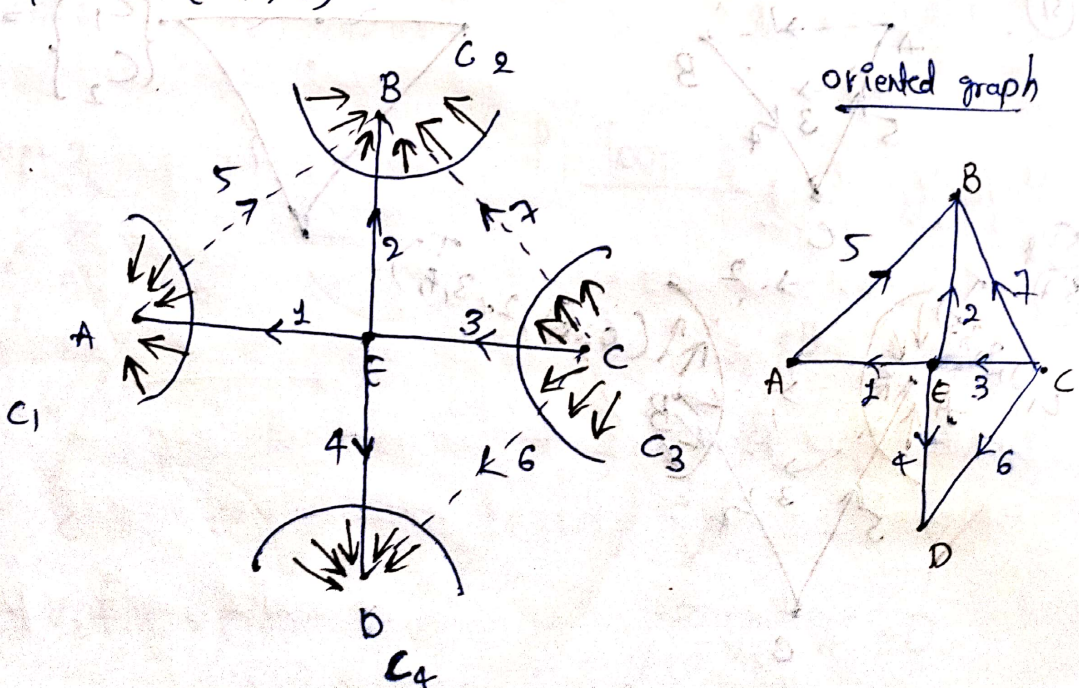 C2
B
oriented graph
5
7
2
A
1
3
E
C
C1
4
6
C3
D
C4
B
5
7
2
A
1
E
3
C
4
6
D